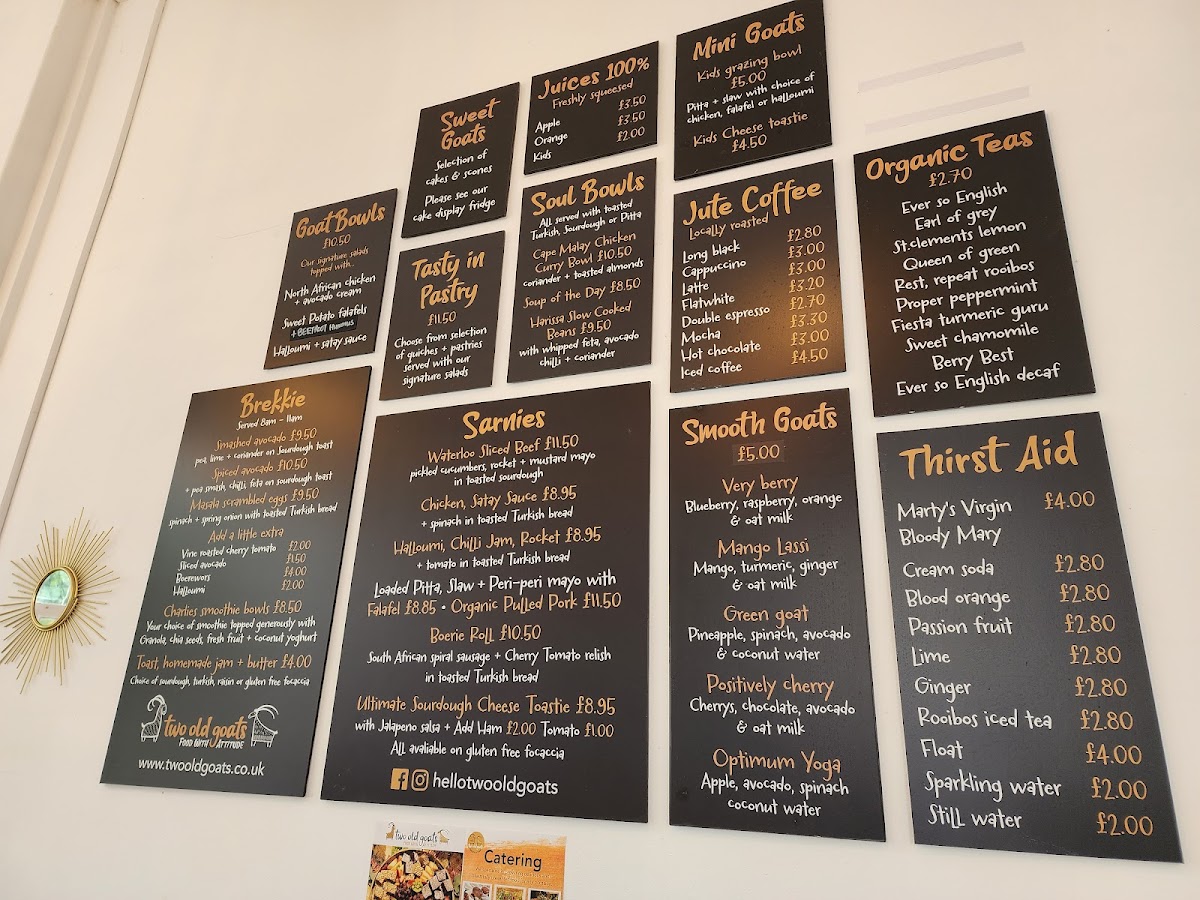 Mini Goats
Kids grazing bowl
£5.00
Pitta + slaw with choice of
chicken, falafel or halloumi
Kids Cheese toastie
£4.50
Juices 100%
Freshly squeesed
Apple £3.50
Orange £3.50
Kids £2.00
Sweet
Goats
Selection of
cakes & scones
Please see our
cake display fridge
Organic Teas
£2.70
Ever so English
Earl of grey
St.clements lemon
Queen of green
Rest, repeat rooibos
Proper peppermint
Fiesta turmeric guru
Sweet chamomile
Berry Best
Ever so English decaf
Goat Bowls
£10.50
Our signature salads
topped with...
North African chicken
+ avocado cream
Sweet Potato falafels
+ BEETROOT HUMMUS
Halloumi + satay sauce
Tasty in
Pastry
£11.50
Choose from selection
of quiches + pastries
served with our
signature salads
Soul Bowls
All served with toasted
Turkish, Sourdough or Pitta
Cape Malay Chicken
Curry Bowl £10.50
coriander + toasted almonds
Soup of the Day £8.50
Harissa Slow Cooked
Beans £9.50
with whipped feta, avocado
chilli + coriander
Jute Coffee
Locally roasted
Long black £2.80
Cappuccino £3.00
Latte £3.00
Flatwhite £3.20
Double espresso £2.70
Mocha £3.30
Hot chocolate £3.00
Iced coffee £4.50
Brekkie
Served 8am - 11am
Smashed avocado £9.50
pea, lime + coriander on Sourdough toast
Spiced avocado £10.50
+ pea smash, chilli, feta on sourdough toast
Masala scrambled eggs £9.50
spinach + spring onion with toasted Turkish bread
Add a little extra
Vine roasted cherry tomato £2.00
Sliced avocado £1.50
Boerewors £4.00
Halloumi £2.00
Charlies smoothie bowls £8.50
Your choice of smoothie topped generously with
Granola, chia seeds, fresh fruit + coconut yoghurt
Toast, homemade jam + butter £4.00
Choice of sourdough, turkish, raisin or gluten free focaccia
two old goats
FOOD WITH ATTITUDE
www.twooldgoats.co.uk
Sarnies
Waterloo Sliced Beef £11.50
pickled cucumbers, rocket + mustard mayo
in toasted sourdough
Chicken, Satay Sauce £8.95
+ spinach in toasted Turkish bread
Halloumi, Chilli Jam, Rocket £8.95
+ tomato in toasted Turkish bread
Loaded Pitta, Slaw + Peri-peri mayo with
Falafel £8.85 • Organic Pulled Pork £11.50
Boerie Roll £10.50
South African spiral sausage + Cherry Tomato relish
in toasted Turkish bread
Ultimate Sourdough Cheese Toastie £8.95
with Jalapeno salsa + Add Ham £2.00 Tomato £1.00
All avaliable on gluten free focaccia
hellotwooldgoats
Smooth Goats
£5.00
Very berry
Blueberry, raspberry, orange
& oat milk
Mango Lassi
Mango, turmeric, ginger
& oat milk
Green goat
Pineapple, spinach, avocado
& coconut water
Positively cherry
Cherrys, chocolate, avocado
& oat milk
Optimum Yoga
Apple, avocado, spinach
coconut water
Thirst Aid
Marty's Virgin £4.00
Bloody Mary
Cream soda £2.80
Blood orange £2.80
Passion fruit £2.80
Lime £2.80
Ginger £2.80
Rooibos iced tea £2.80
Float £4.00
Sparkling water £2.00
Still water £2.00
two old goats
Catering